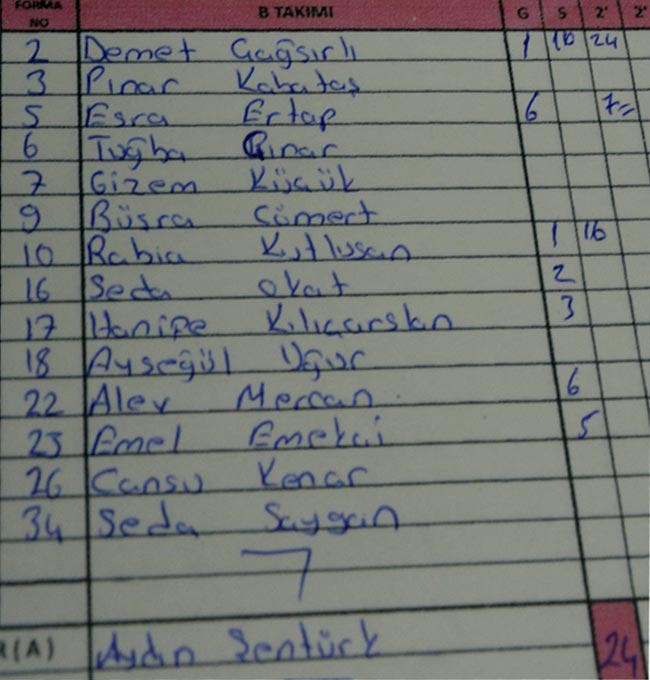 FORMA NO B TAKIMI G S 2' 2'
2 Demet Çağsırlı 1 10 24
3 Pınar Kabataş
5 Esra Ertap 6 7=
6 Tuğba Çınar
7 Gizem Küçük
9 Büşra Cömert
10 Rabia Kutlusan 1 16
16 Seda Okat 2
17 Hanife Kılıçarslan 3
18 Ayşegül Uğur
22 Alev Mercan 6
25 Emel Emekçi 5
26 Cansu Kenar
34 Seda Saygan
R(A) Aydın Şentürk 24